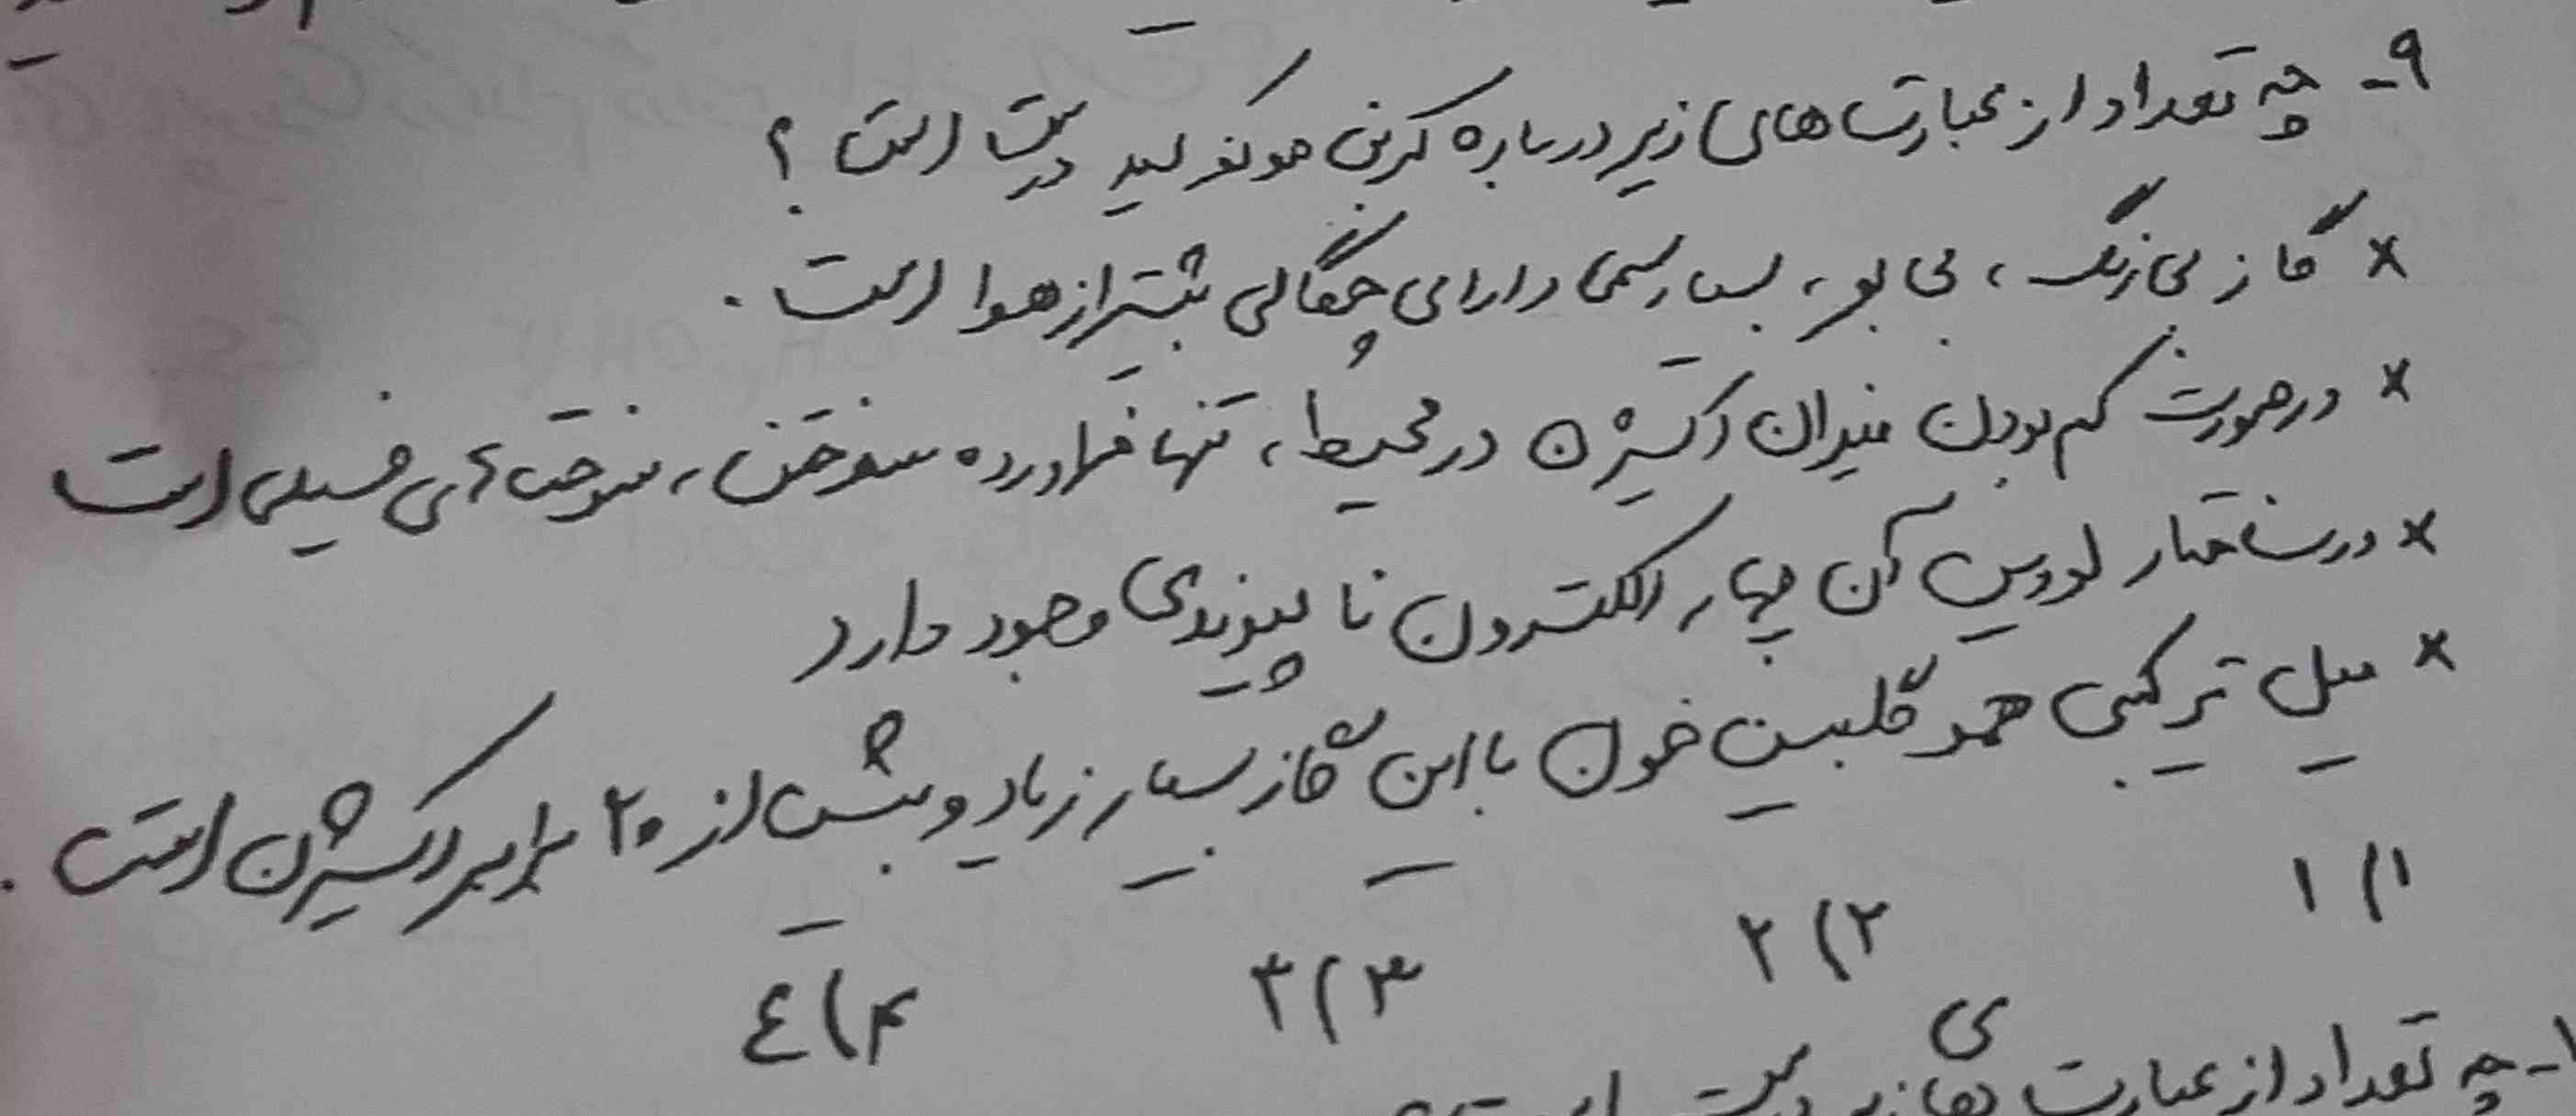 ۹- چه تعداد از عبارت‌های زیر درباره کربن مونوکسید درست است ؟
× گاز بی رنگ ، بی بو ، بسیار سمی دارای چگالی بیشتر از هوا است .
× در صورت کم بودن میزان اکسیژن در محیط ، تنها فراورده سوختن ، سوخت های فسیلی است
× در ساختار لوویس آن چهار الکترون ناپیوندی وجود دارد
× میل ترکیبی هموگلبین خون با این گاز بسیار زیاد و بیش از ۲۰۰ برابر اکسیژن است .
۱) ۱ ۲) ۲ ۳) ۳ ۴) ٤
چه تعداد از عبارت های